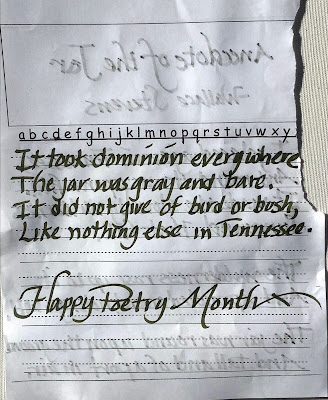 Anecdote of the Jar
Wallace Stevens
abcdefghijklmnopqrstuvwxy
It took dominion everywhere
The jar was gray and bare.
It did not give of bird or bush,
Like nothing else in Tennessee.
Happy Poetry Month